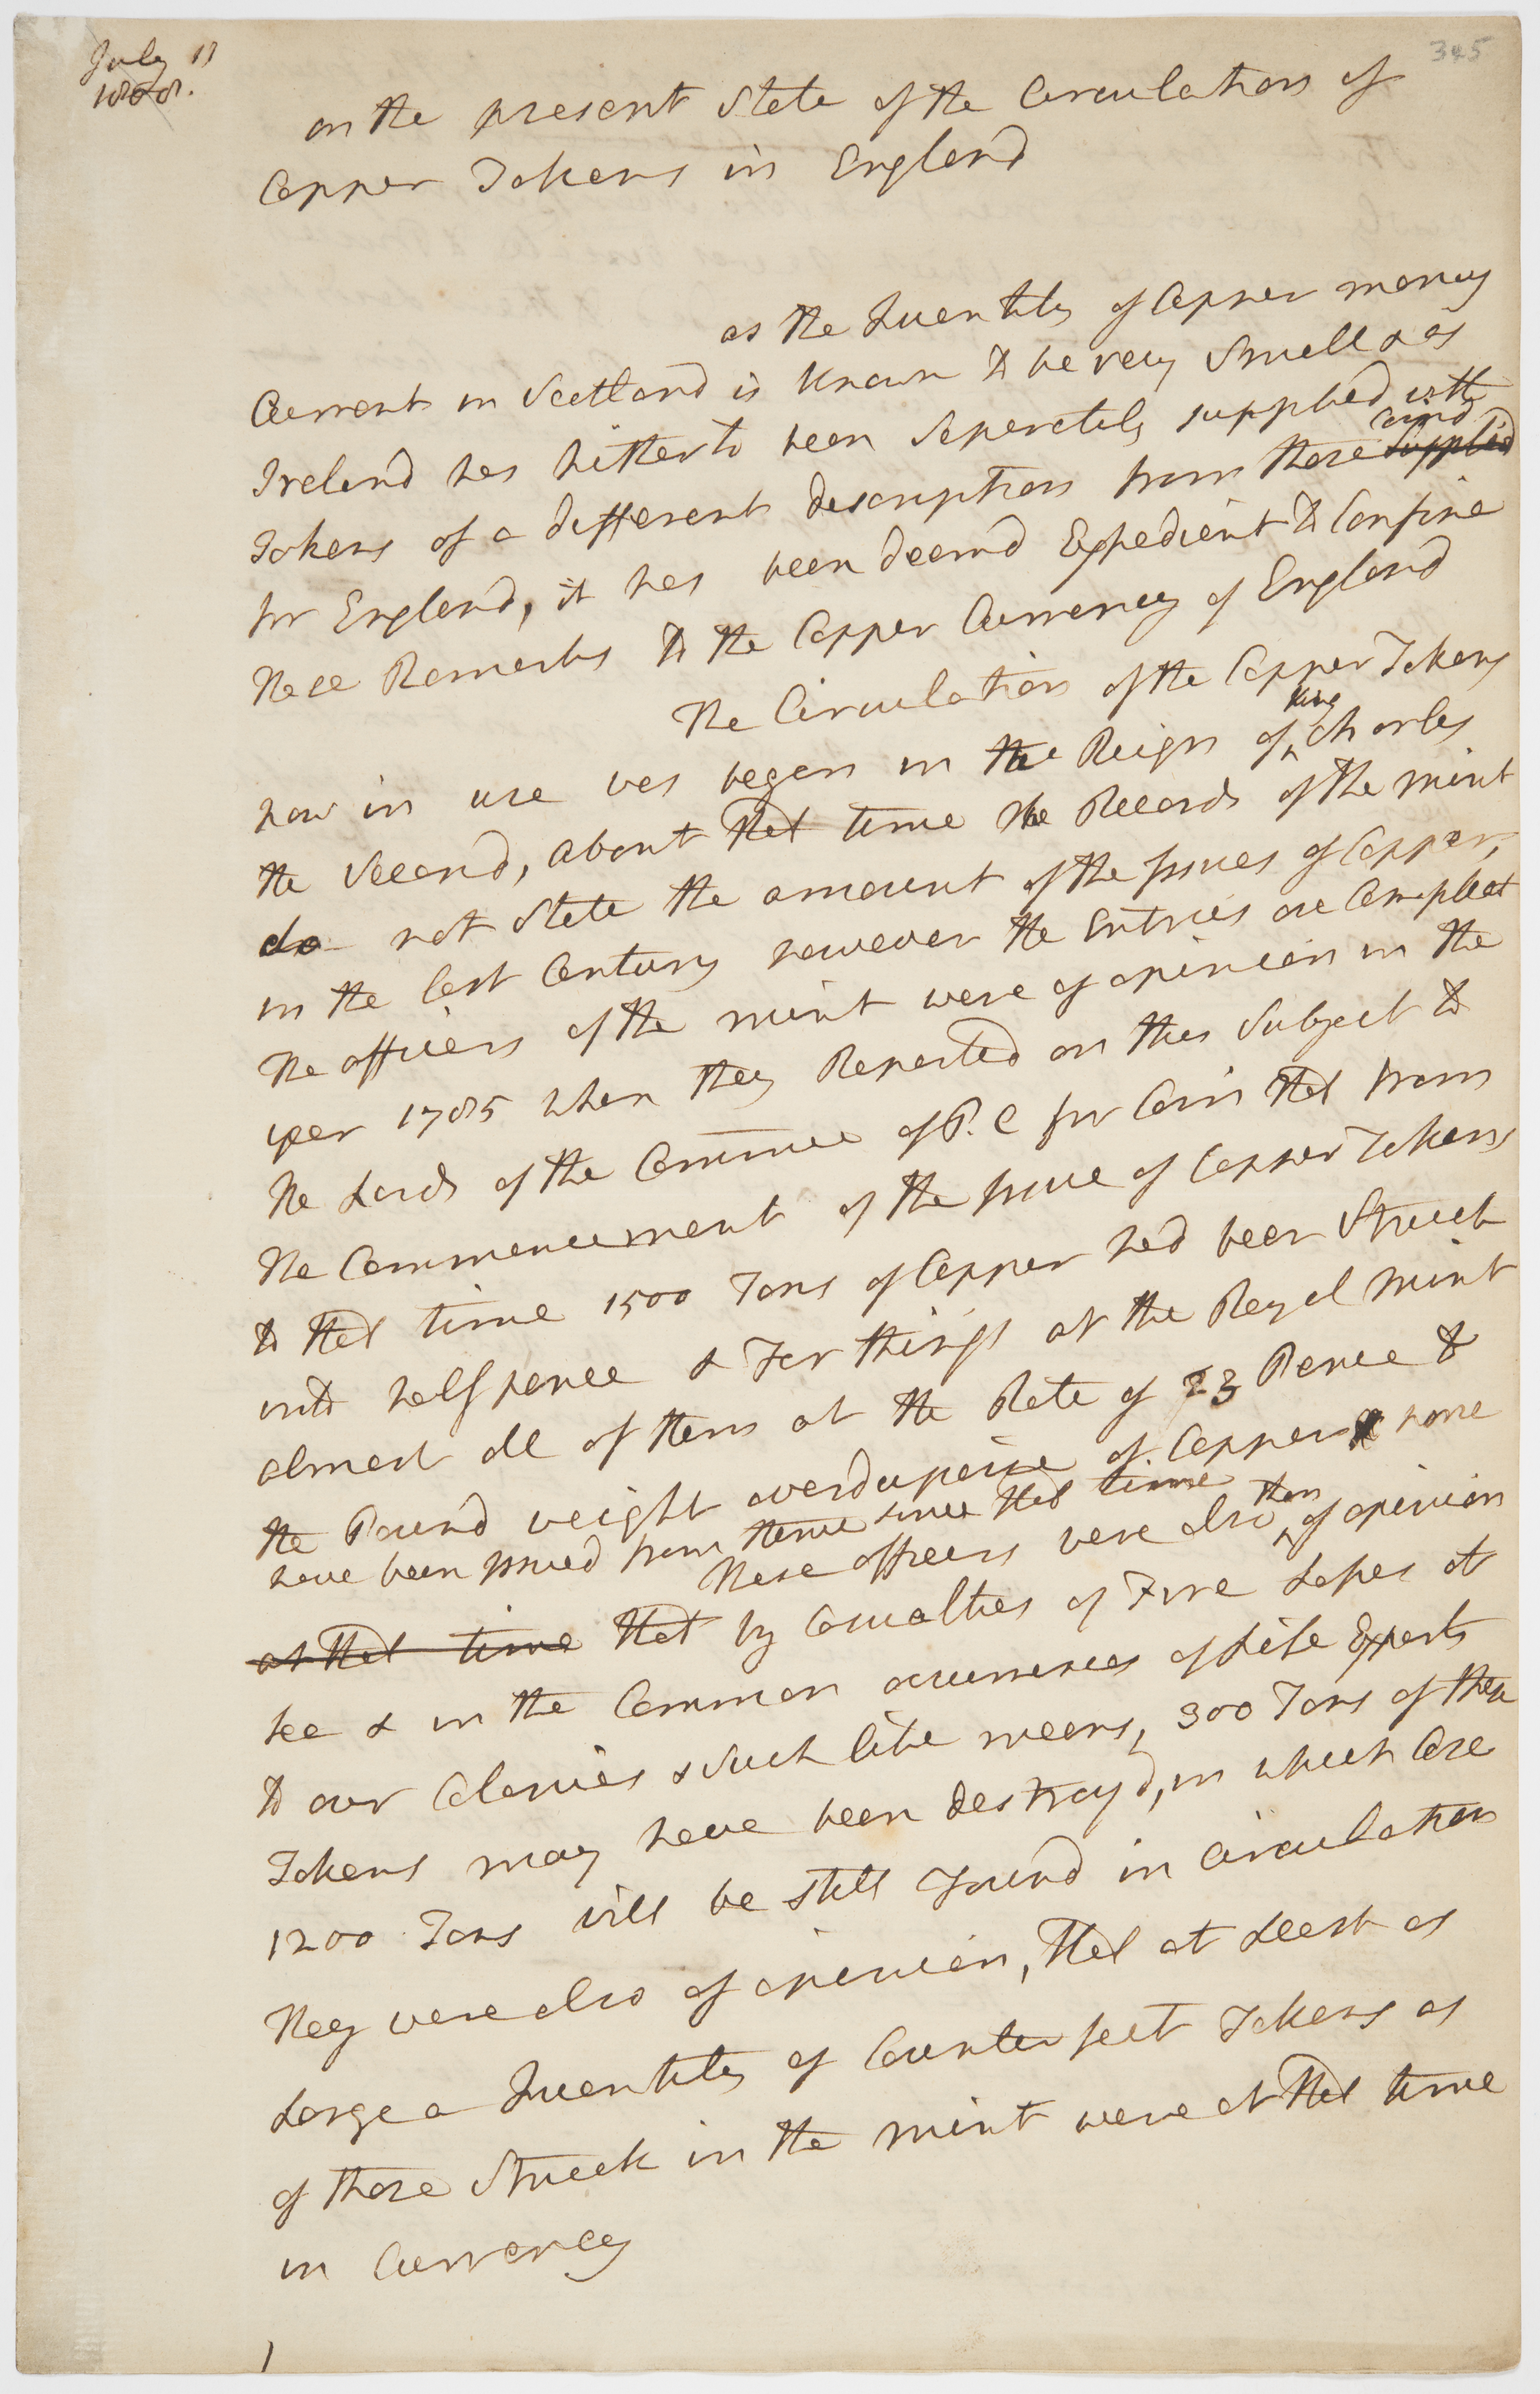 July 11
1808.
345
on the present State of the Circulation of
Copper Tokens in England
as the Quantity of Copper money
Current in Scotland is known to be very Small & as
Ireland has hitherto been Seperately supplied with
Tokens of a different description from those coind supplied
for England, it has been deemd Expedient to Confine
these Remarks to the Copper Currency of England
The Circulation of the Copper Tokens
now in use was began in the Reign of King Charles
the Second, about that time the Records of the mint
do not State the amount of the Issues of Copper,
in the last Century however the Entries are Compleat
The officers of the mint were of opinion in the
year 1785 when they Reported on this Subject to
the Lords of the Committee of P. C for Coin that from
the Commencement of the Issue of Copper Tokens
to that time 1500 Tons of Copper had been Struck
into halfpence & Farthings at the Royal Mint
almost all of them at the Rate of 23 Pence to
the Pound weight averdupoise of Copper none
have been Issued from thence since that time
These officers were also then of opinion
at that time that by Casualties of Fire Losses at
sea & in the Common occurrences of Life Exports
to our Colonies & Such like means, 300 Tons of these
Tokens may have been destroyd, in which Case
1200 Tons will be still Found in Circulation
they were also of opinion, that at Least as
Large a Quantity of Counterfeit Tokens as
of those Struck in the mint were at that time
in Currency
1